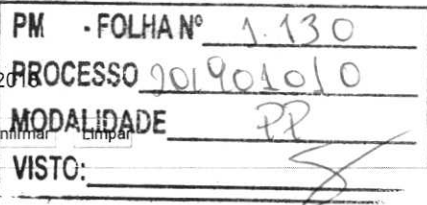 PM - FOLHA Nº 1.130
2018
PROCESSO 201901010
MODALIDADE PP
Limpar
VISTO: